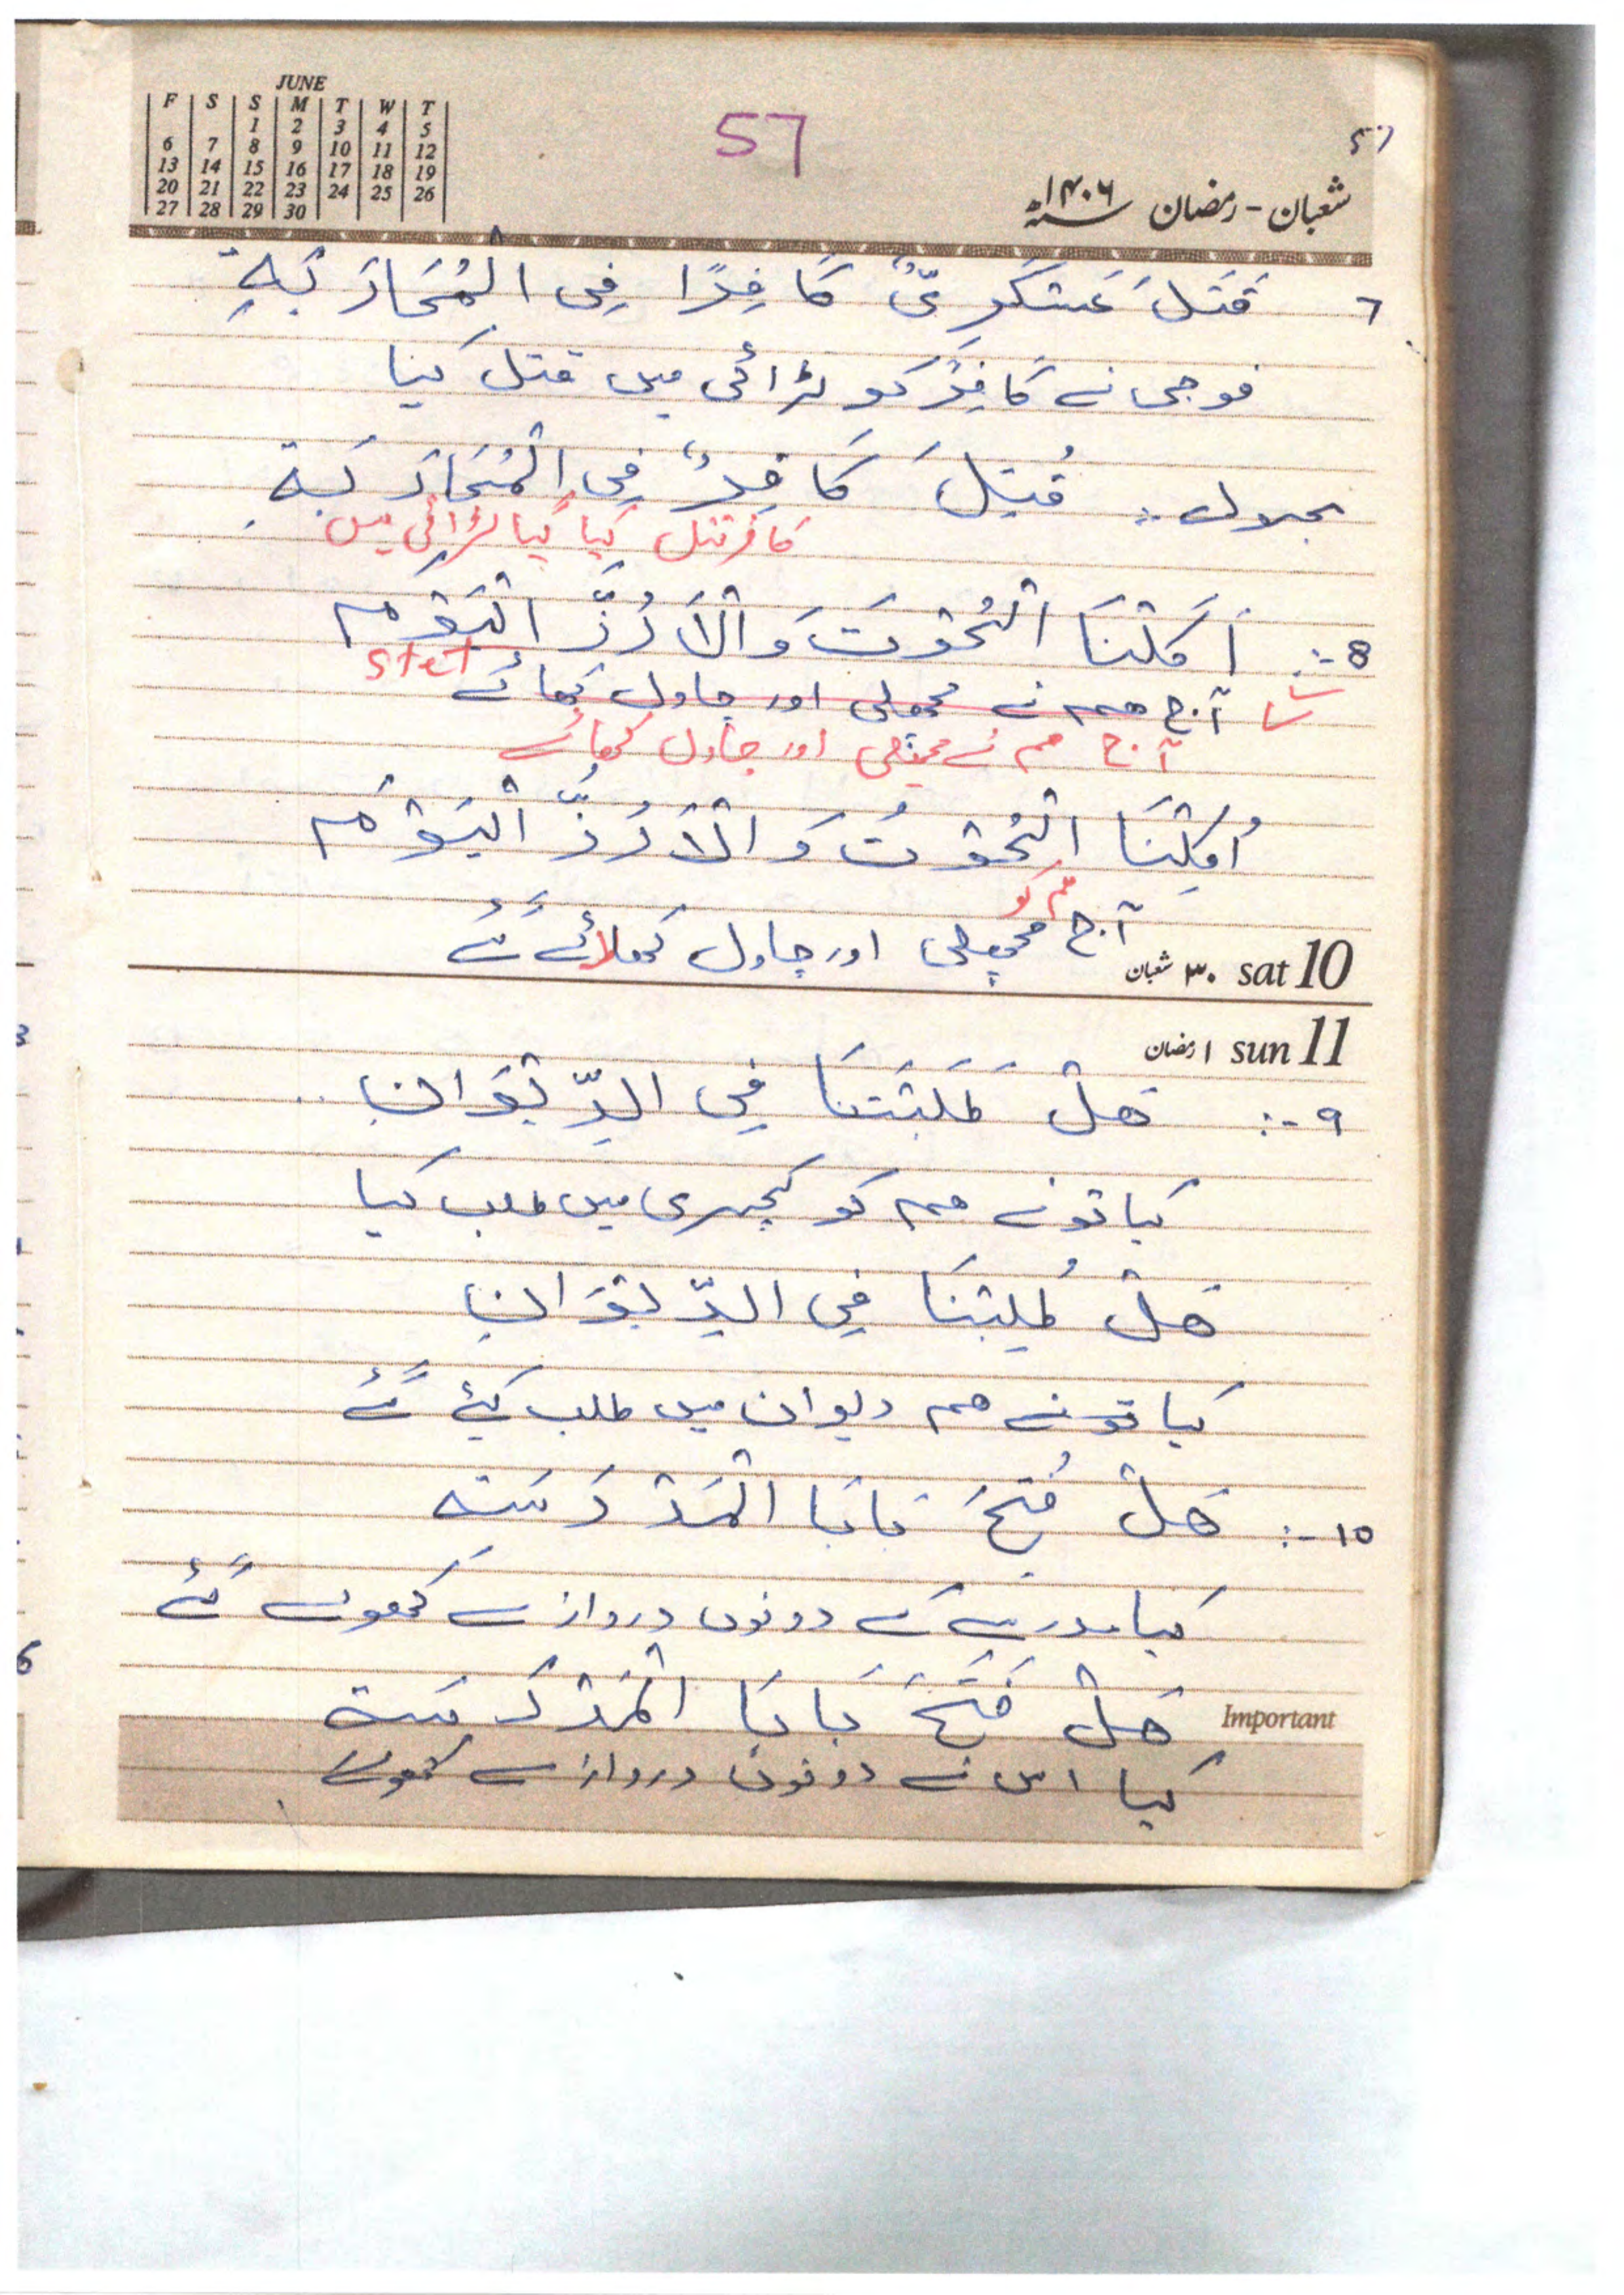 JUNE
F S S M T W T
1 2 3 4 5
6 7 8 9 10 11 12
13 14 15 16 17 18 19
20 21 22 23 24 25 26
27 28 29 30
57
شعبان - رمضان ۱۴۰۶
قَتَلَ عَسْکَرِیٌّ کَافِرًا فِی الْمُحَارَبَةِ
فوجی نے کافِر کو لڑائی میں قتل کیا
مجہول :- قُتِلَ کَافِرٌ فِی الْمُحَارَبَةِ
کافر قتل کیا گیا لڑائی میں
8 :- اَکَلْنَا الْحُوْتَ وَالْاَرُزَّ الْیَوْمَ
stet
آج ہم نے مچھلی اور چاول کھائے
آج ہم نے مچھلی اور چاول کھائے
اُکِلْنَا الْحُوْتُ وَ الْاَرُزُّ الْیَوْمَ
ہم کو
آج مچھلی اور چاول کھلائے گئے
۳۰ شعبان sat 10
۱ رمضان sun 11
۹ :- هَلْ طَلَبْتَنَا فِی الدِّیْوَانِ
کیا تونے ہم کو کچہری میں طلب کیا
هَلْ طُلِبْنَا فِی الدِّیْوَانِ
کیا تونے ہم دیوان میں طلب کیئے گئے
۱۰ :- هَلْ فُتِحَ بَابَا الْمَدْرَسَة
کیا مدرسے کے دونوں دروازے کھولے گئے
هَلْ فَتَحَ بَابَا الْمَدْرَسَة
Important
کیا اس نے دونوں دروازے کھولے